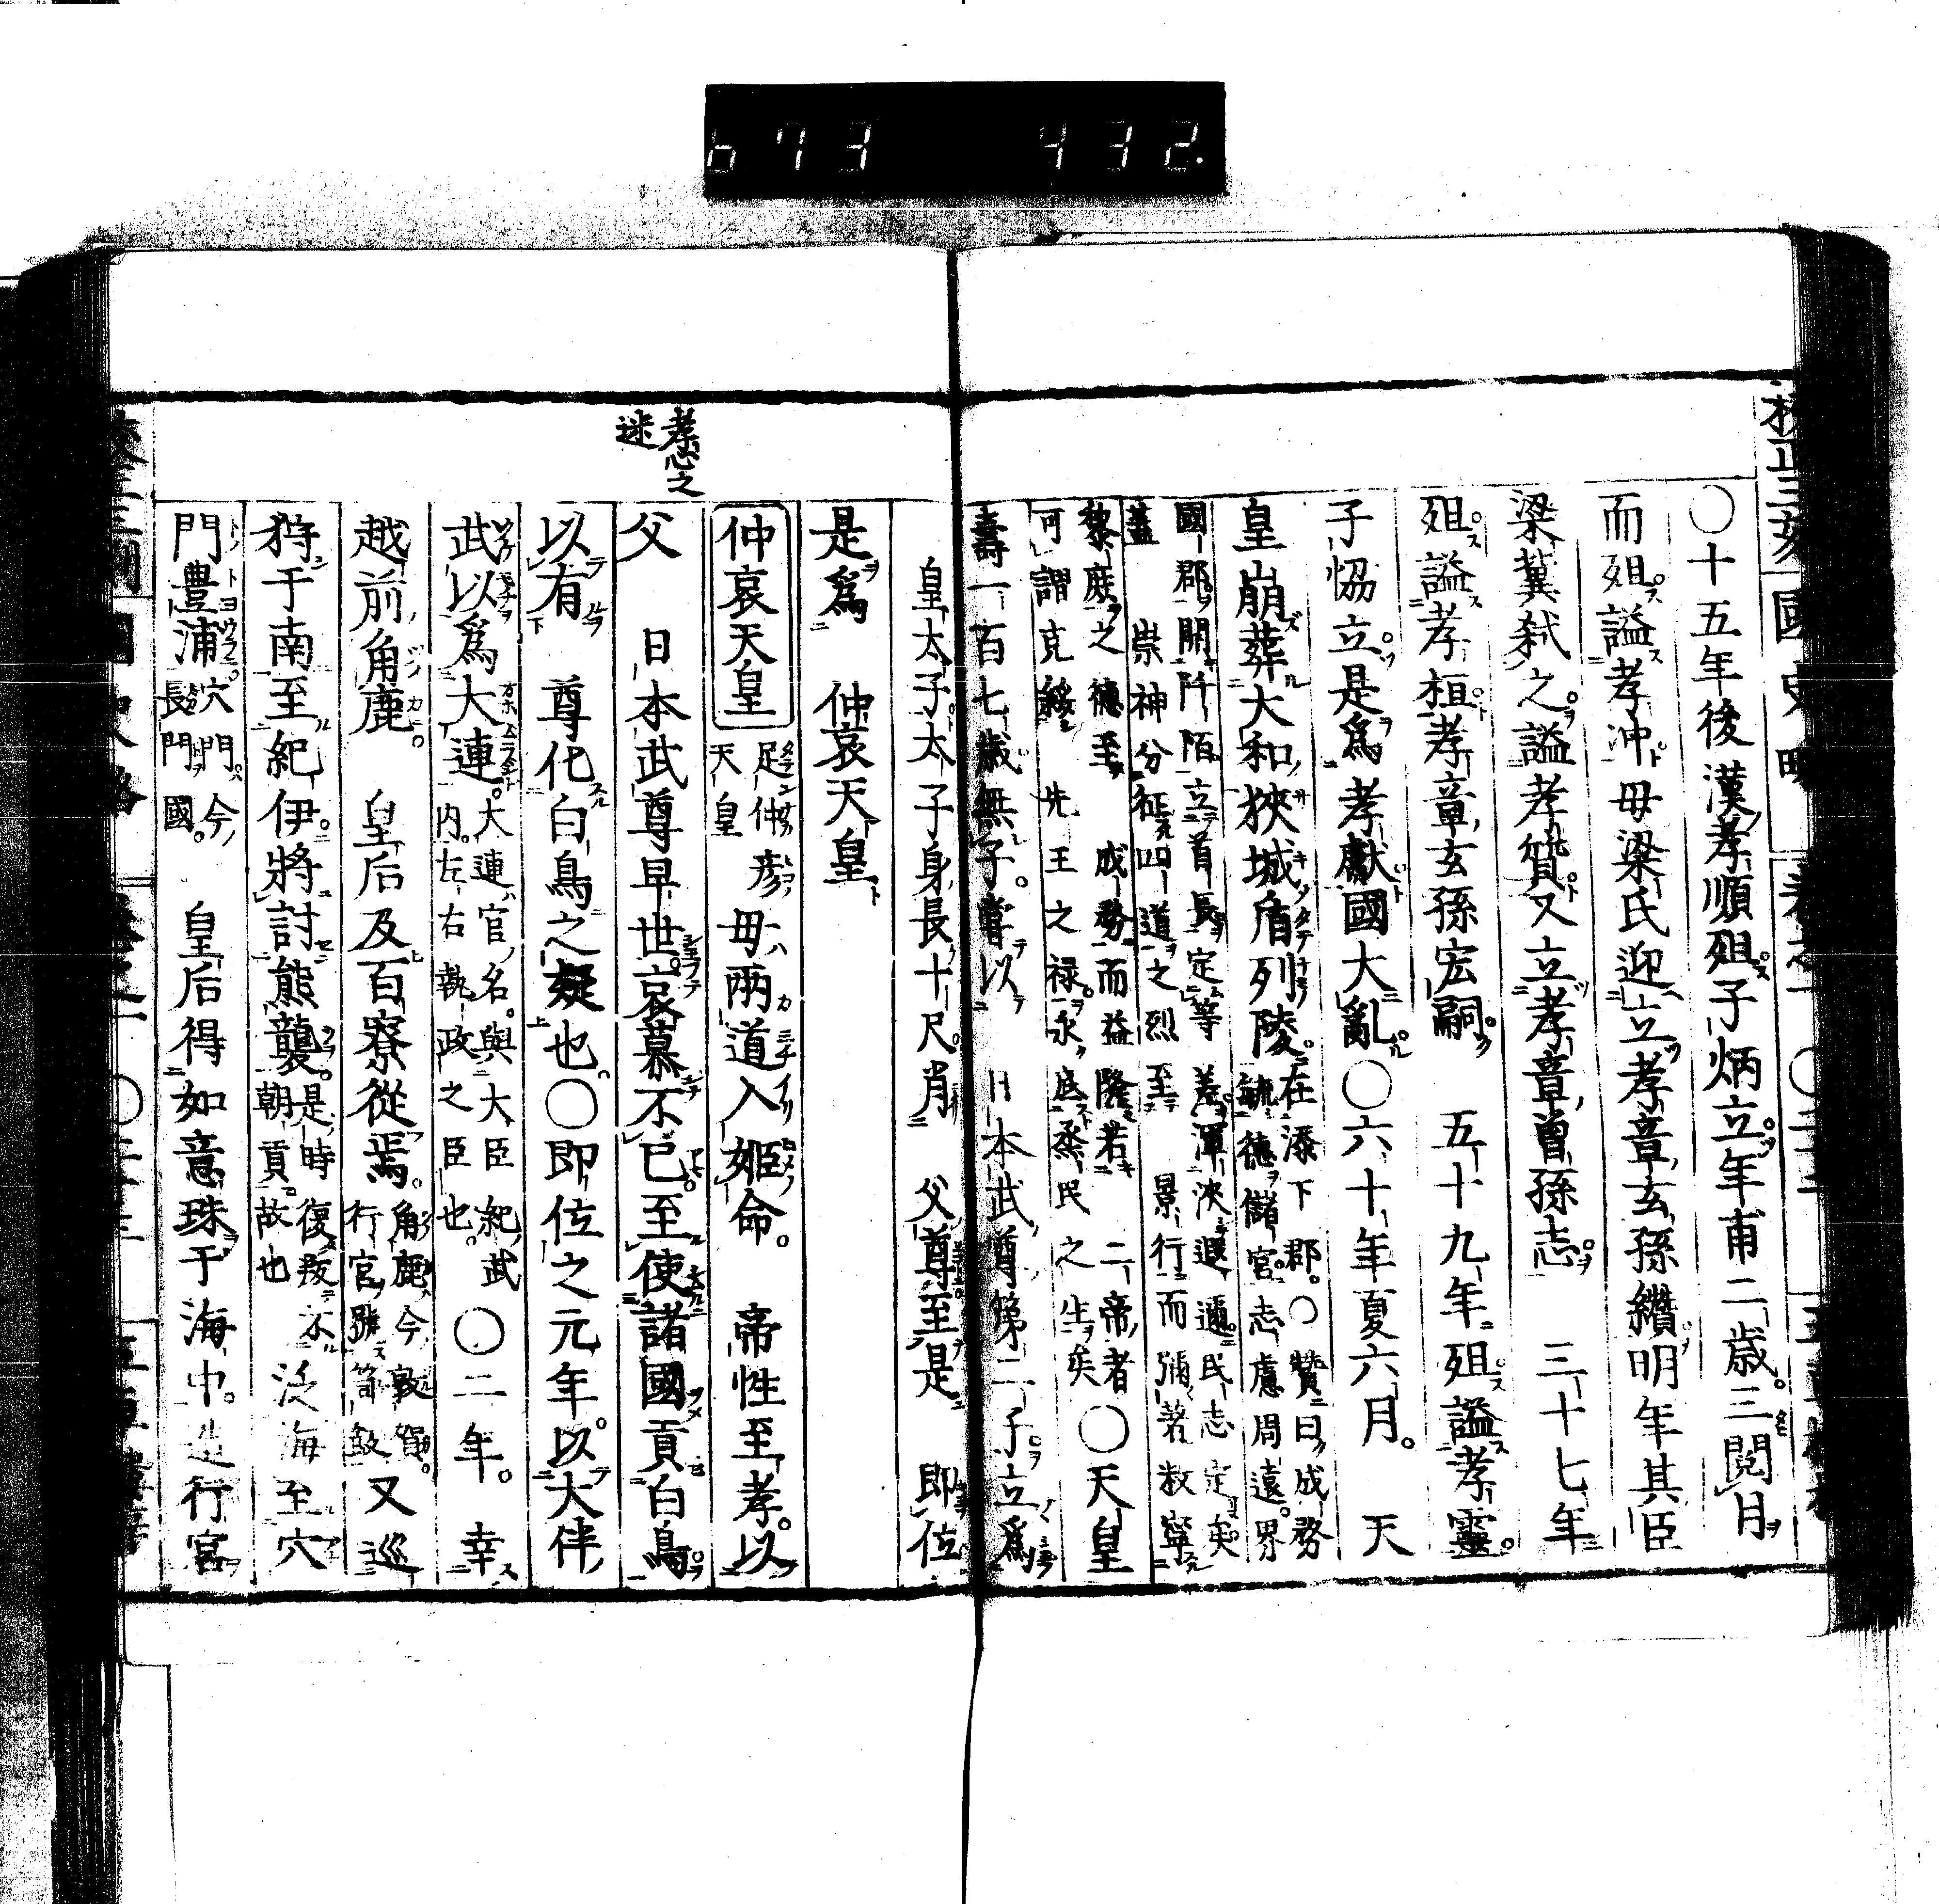 673 432.
〇十五年後漢孝順殂子炳立年甫二歳三閲月
而殂謚孝沖母梁氏迎立孝章玄孫纘明年其臣
梁冀弑之謚孝質又立孝章曽孫志 三十七年
殂謚孝桓孝章玄孫宏嗣 五十九年殂謚孝靈
子恊立是爲孝獻國大亂〇六十年夏六月 天
皇崩葬大和狹城盾列陵在添下郡〇贊曰成務
毓德儲宮志慮周遠界
國郡開阡陌立首長定等差渾浹遐邇民志定矣
蓋 崇神分征四道之烈至 景行而彌著敉寧
黎庶之德至 成務而益隆若 二帝者
可謂克 先王之禄永底烝民之生矣〇天皇
壽一百七歳無子嘗以 日本武尊第二子立爲
皇太子太子身長十尺肖 父尊至是 即位
是爲 仲哀天皇
孝心之
迷
仲哀天皇 足仲彦天皇 母兩道入姫命 帝性至孝以
父 日本武尊早世哀慕不已至使諸國貢白鳥
以有 尊化白鳥之疑也〇即位之元年以大伴
武以爲大連大連官名與大臣紀武内左右執政之臣也〇二年 幸
越前角鹿 皇后及百寮從焉角鹿今敦賀行宮號笥飯又巡
狩于南至紀伊將討熊襲是時復叛不朝貢故也 泛海至穴
門豊浦穴門今長門國 皇后得如意珠于海中造行宮